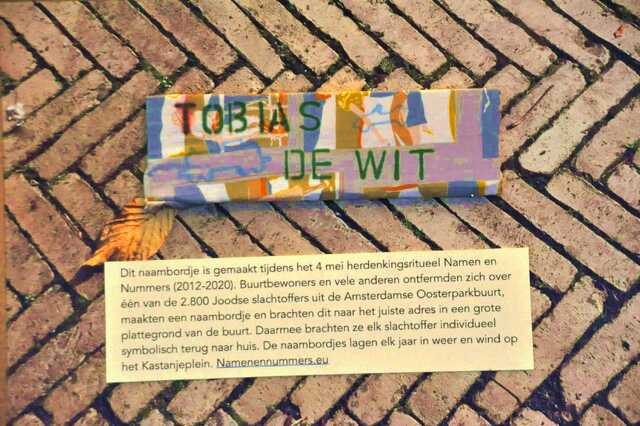 TOBIAS
DE WIT
Dit naambordje is gemaakt tijdens het 4 mei herdenkingsritueel Namen en
Nummers (2012-2020). Buurtbewoners en vele anderen ontfermden zich over
één van de 2.800 Joodse slachtoffers uit de Amsterdamse Oosterparkbuurt,
maakten een naambordje en brachten dit naar het juiste adres in een grote
plattegrond van de buurt. Daarmee brachten ze elk slachtoffer individueel
symbolisch terug naar huis. De naambordjes lagen elk jaar in weer en wind op
het Kastanjeplein. Namenennummers.eu